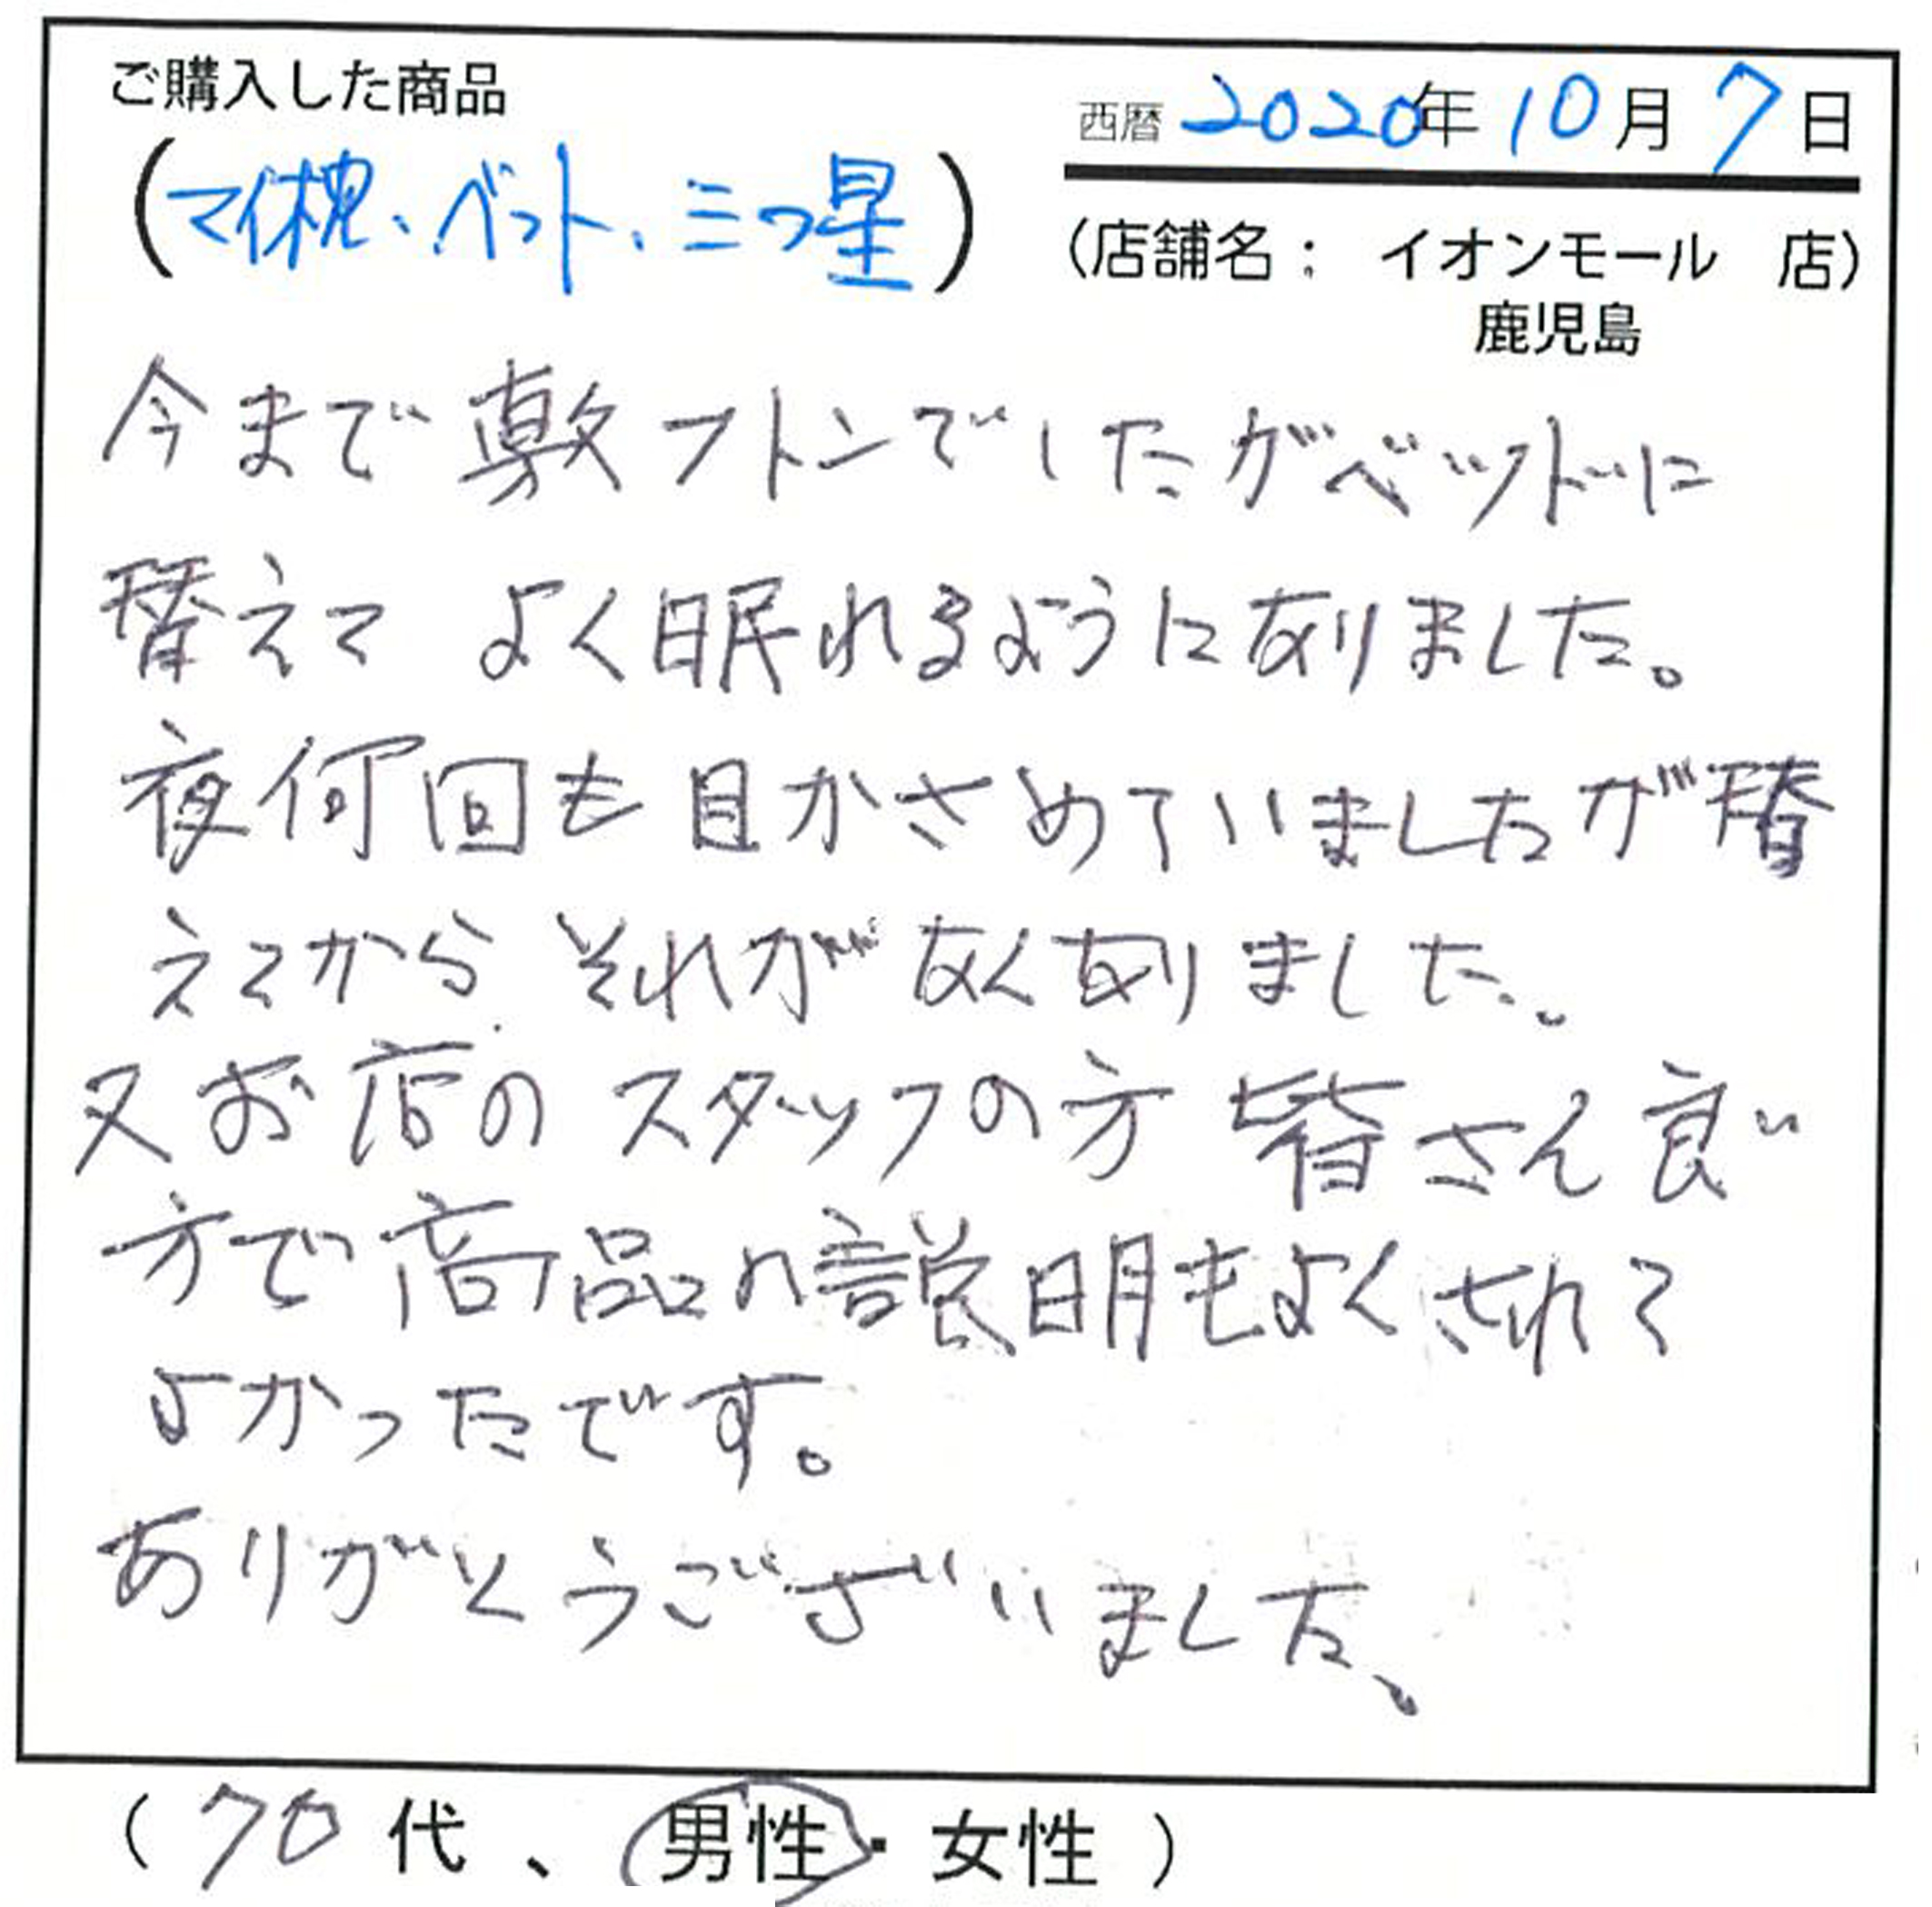 ご購入した商品
西暦 2020年 10月 7日
(マイ枕、ベット、三つ星)
(店舗名： イオンモール 店)
鹿児島
今まで敷フトンでしたがベットに
替えて よく眠れるようになりました。
夜何回も目かさめていましたが替
えてから それが なくなりました。
又お店の スタッフの方 皆さん良い
方で商品の説明もよくされて
よかったです。
ありがとうございました、
( 70 代 、 男性・女性 )